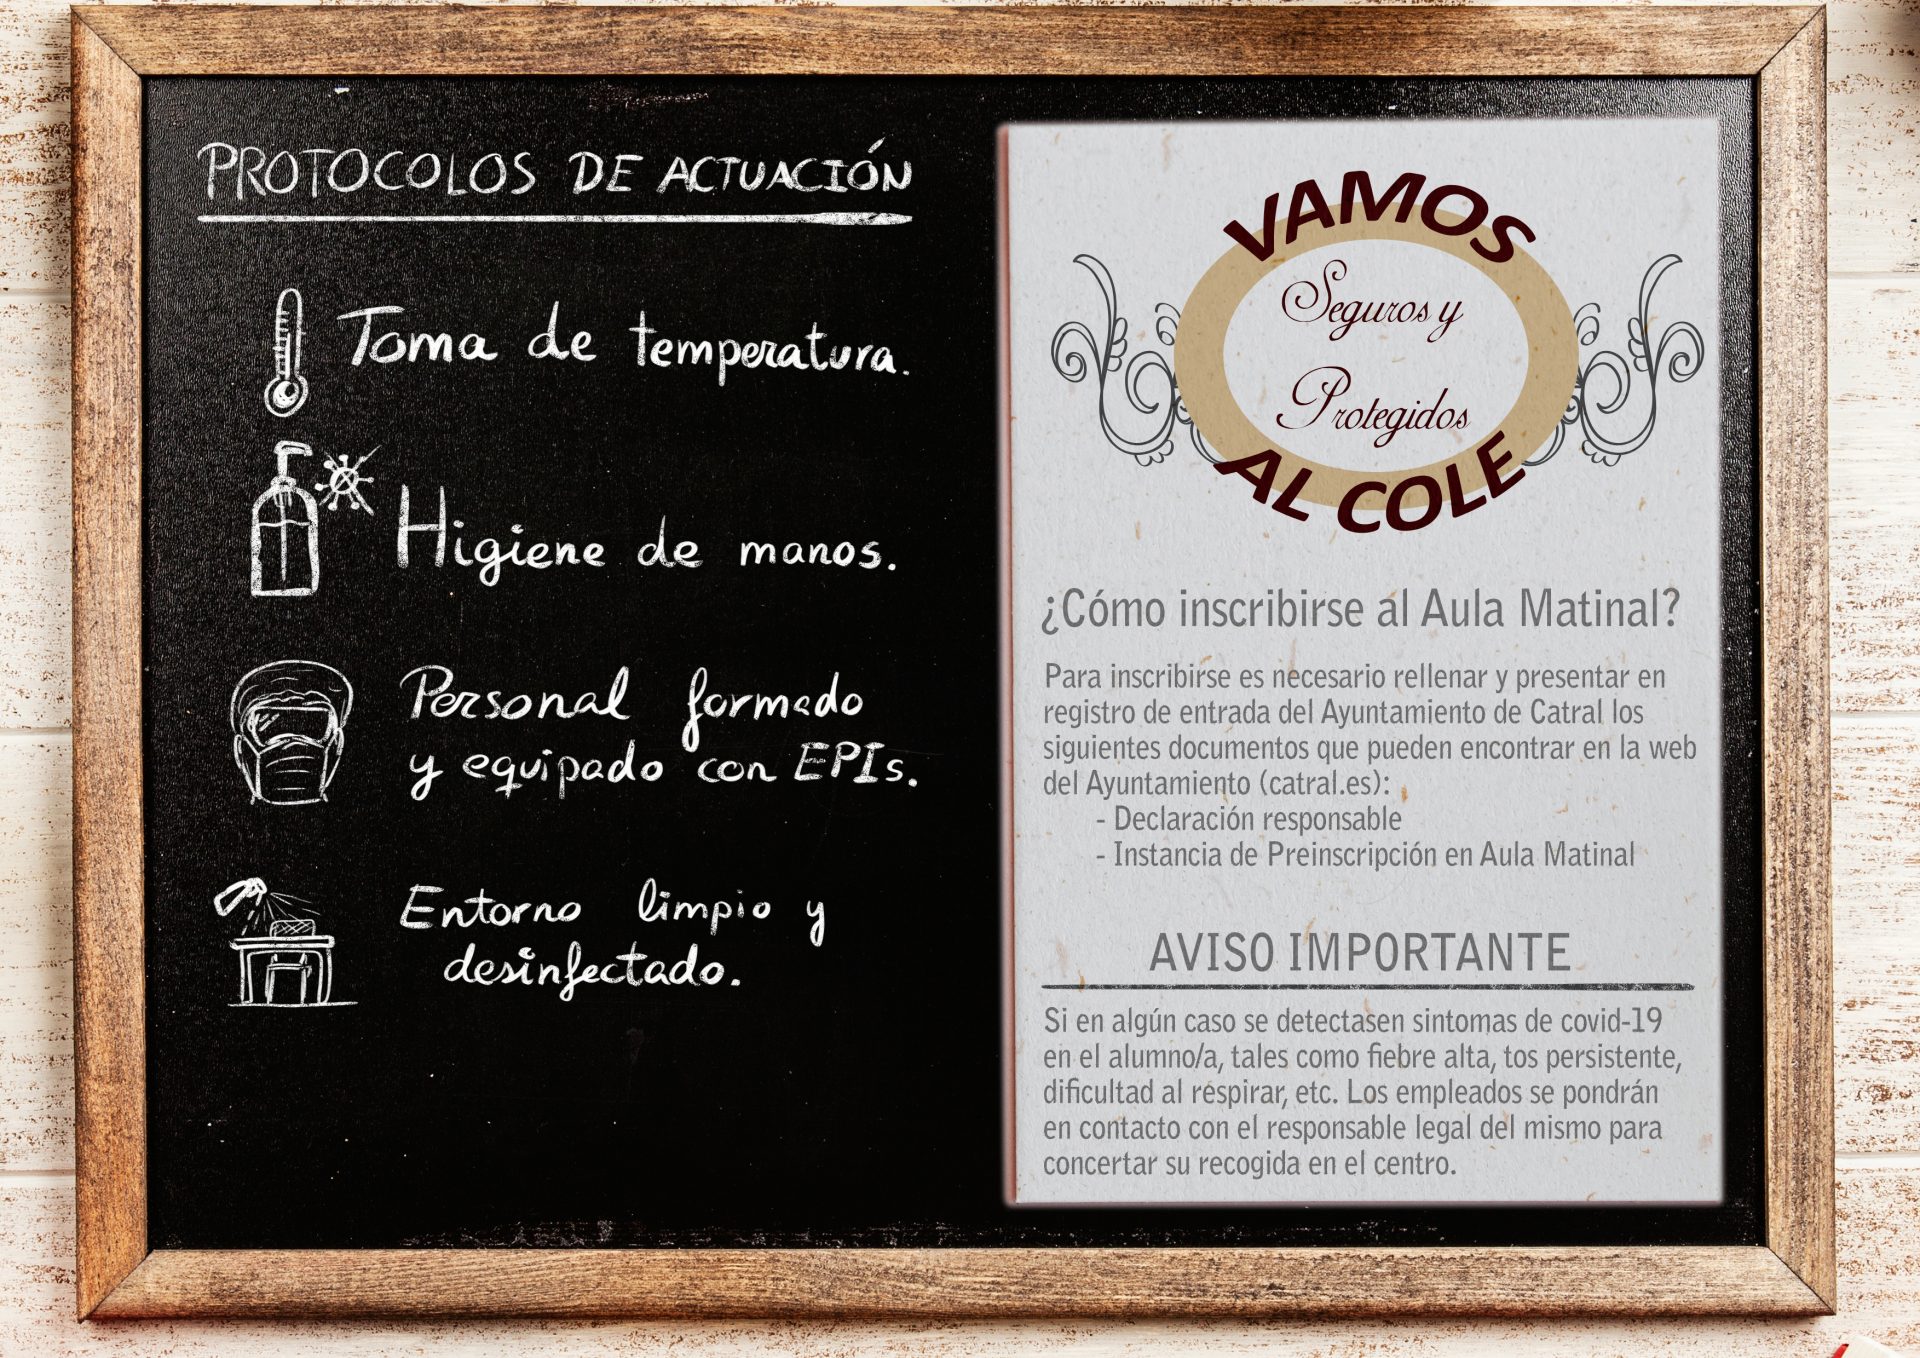 PROTOCOLOS DE ACTUACIÓN
Toma de temperatura.
Higiene de manos.
Personal formado
y equipado con EPIs.
Entorno limpio y
desinfectado.
VAMOS
Seguros y
Protegidos
AL COLE
¿Cómo inscribirse al Aula Matinal?
Para inscribirse es necesario rellenar y presentar en
registro de entrada del Ayuntamiento de Catral los
siguientes documentos que pueden encontrar en la web
del Ayuntamiento (catral.es):
- Declaración responsable
- Instancia de Preinscripción en Aula Matinal
AVISO IMPORTANTE
Si en algún caso se detectasen sintomas de covid-19
en el alumno/a, tales como fiebre alta, tos persistente,
dificultad al respirar, etc. Los empleados se pondrán
en contacto con el responsable legal del mismo para
concertar su recogida en el centro.